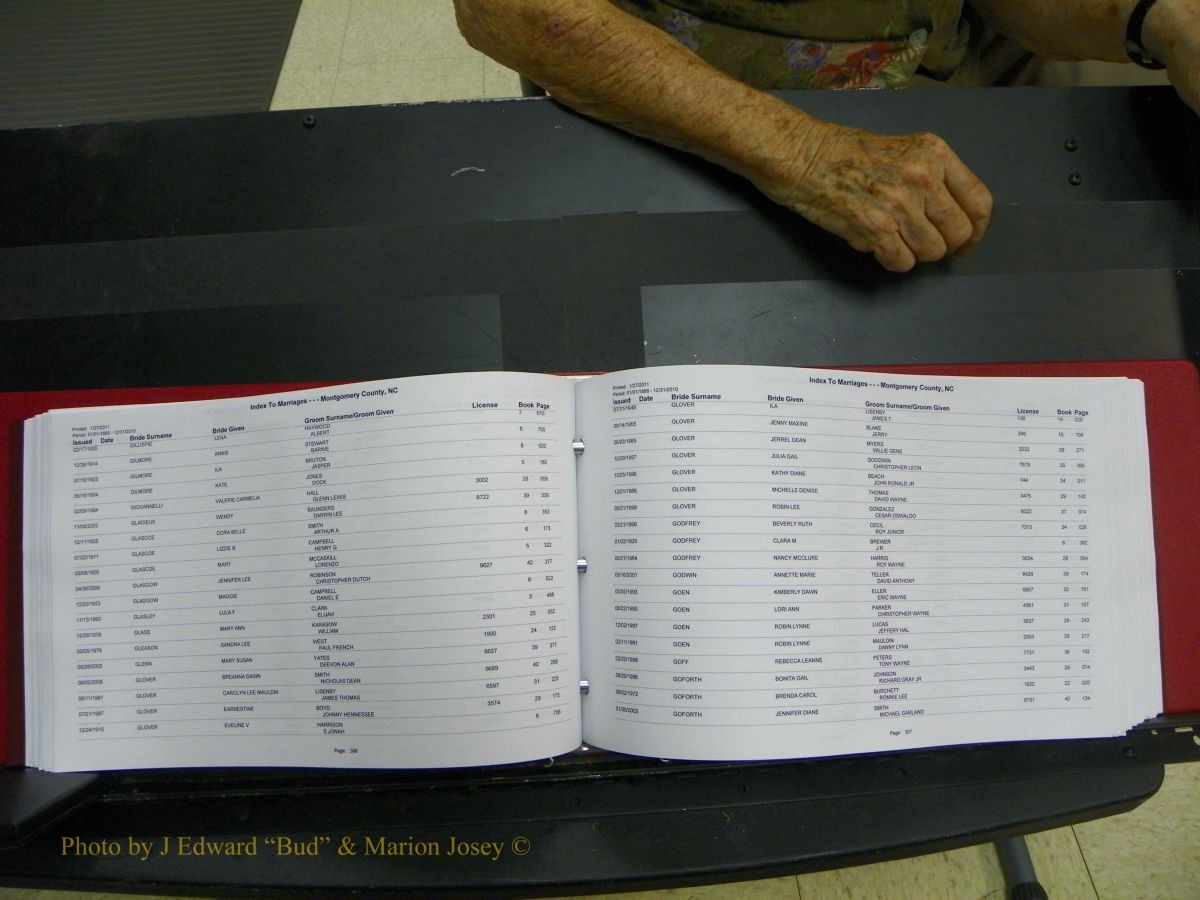 Printed: 1/27/2011
Period: 01/01/1868 - 12/31/2010
Index To Marriages - - - Montgomery County, NC
Issued Date Bride Surname Bride Given Groom Surname/Groom Given License Book Page
02/17/1920 GILLESPIE LENA HAYWOOD 7 610
ALBERT
12/26/1914 GILMORE ANNIE STEWART 6 705
BARNIE
07/13/1923 GILMORE ILA BRUTON 8 020
JASPER
05/16/1904 GILMORE KATE JONES 5 180
DOCK
02/09/1984 GIOVANNELLI VALERIE CARMELIA HALL 3002 28 056
GLENN LEWIS
11/08/2002 GLADIEUX WENDY SAUNDERS 8722 39 339
DARRIN LEE
12/11/1925 GLASCOE CORA BELLE SMITH 8 353
ARTHUR A
07/22/1911 GLASCOE LIZZIE B CAMPBELL 6 173
HENRY G
03/08/1905 GLASCOE MARY MCCASKILL 5 322
LORENZO
04/30/2008 GLASGOW JENNIFER LEE ROBINSON 9627 42 277
CHRISTOPHER DUTCH
12/20/1923 GLASGOW MAGGIE CAMPBELL 8 022
DANIEL E
11/13/1893 GLASLEY LULA F CLARK 3 488
ELIJAH
12/28/1978 GLASS MARY ANN KARASOW 2301 25 052
WILLIAM
03/05/1976 GLEASON SANDRA LEE WEST 1990 24 122
PAUL FRENCH
05/28/2002 GLENN MARY SUSAN YATES 8627 39 377
DEEVON ALAN
09/02/2008 GLOVER BREANNA DAWN SMITH 9689 42 288
NICHOLAS DEAN
06/11/1991 GLOVER CAROLYN LEE MAULDIN LISENBY 6597 31 225
JAMES THOMAS
07/21/1987 GLOVER EARNESTINE BOYD 3574 29 175
JOHNNY HENNESSEE
12/24/1915 GLOVER EVELINE V HARRISON 6 758
S JONAH
Page: 306
Printed: 1/27/2011
Period: 01/01/1868 - 12/31/2010
Index To Marriages - - - Montgomery County, NC
Issued Date Bride Surname Bride Given Groom Surname/Groom Given License Book Page
07/31/1948 GLOVER ILA LISENBY 136 14 029
JAMES T
05/14/1955 GLOVER JENNY MAXINE BLAKE 246 15 104
JERRY
06/03/1985 GLOVER JERREL DEAN MYERS 3232 28 271
WILLIE GENE
10/29/1997 GLOVER JULIA GAIL GOODWIN 7679 35 066
CHRISTOPHER LEON
10/25/1996 GLOVER KATHY DIANE BEACH 744 34 011
JOHN RONALD JR
12/01/1986 GLOVER MICHELLE DENISE THOMAS 3475 29 140
DAVID WAYNE
05/21/1999 GLOVER ROBIN LEE GONZALEZ 8022 37 074
CESAR OSWALDO
03/21/1996 GODFREY BEVERLY RUTH CECIL 7313 34 028
ROY JUNIOR
01/02/1926 GODFREY CLARA M BREWER 8 362
J R
05/01/1984 GODFREY NANCY MCCLURE HARRIS 3034 28 064
ROY WAYNE
05/16/2001 GODWIN ANNETTE MARIE TELLER 8426 39 174
DAVID ANTHONY
05/05/1993 GOEN KIMBERLY DAWN ELLER 32 161
ERIC WAYNE
06/22/1990 GOEN LORI ANN PARKER 4061 31 107
CHRISTOPHER WAYNE
12/02/1987 GOEN ROBIN LYNNE LUCAS 3637 29 243
JEFFERY HAL
02/11/1981 GOEN ROBIN LYNNE MAULDIN 2553 26 217
DANNY LYNN
02/20/1998 GOFF REBECCA LEANNE PETERS 7731 36 152
TONY WAYNE
08/29/1986 GOFORTH BONITA GAIL JOHNSON 3443 29 074
RICHARD GRAY JR
08/02/1972 GOFORTH BRENDA CAROL BURCHETT 1632 22 020
RONNIE LEE
01/30/2003 GOFORTH JENNIFER DIANE SMITH 8751 40 134
MICHAEL GARLAND
Page: 307
Photo by J Edward “Bud” & Marion Josey ©